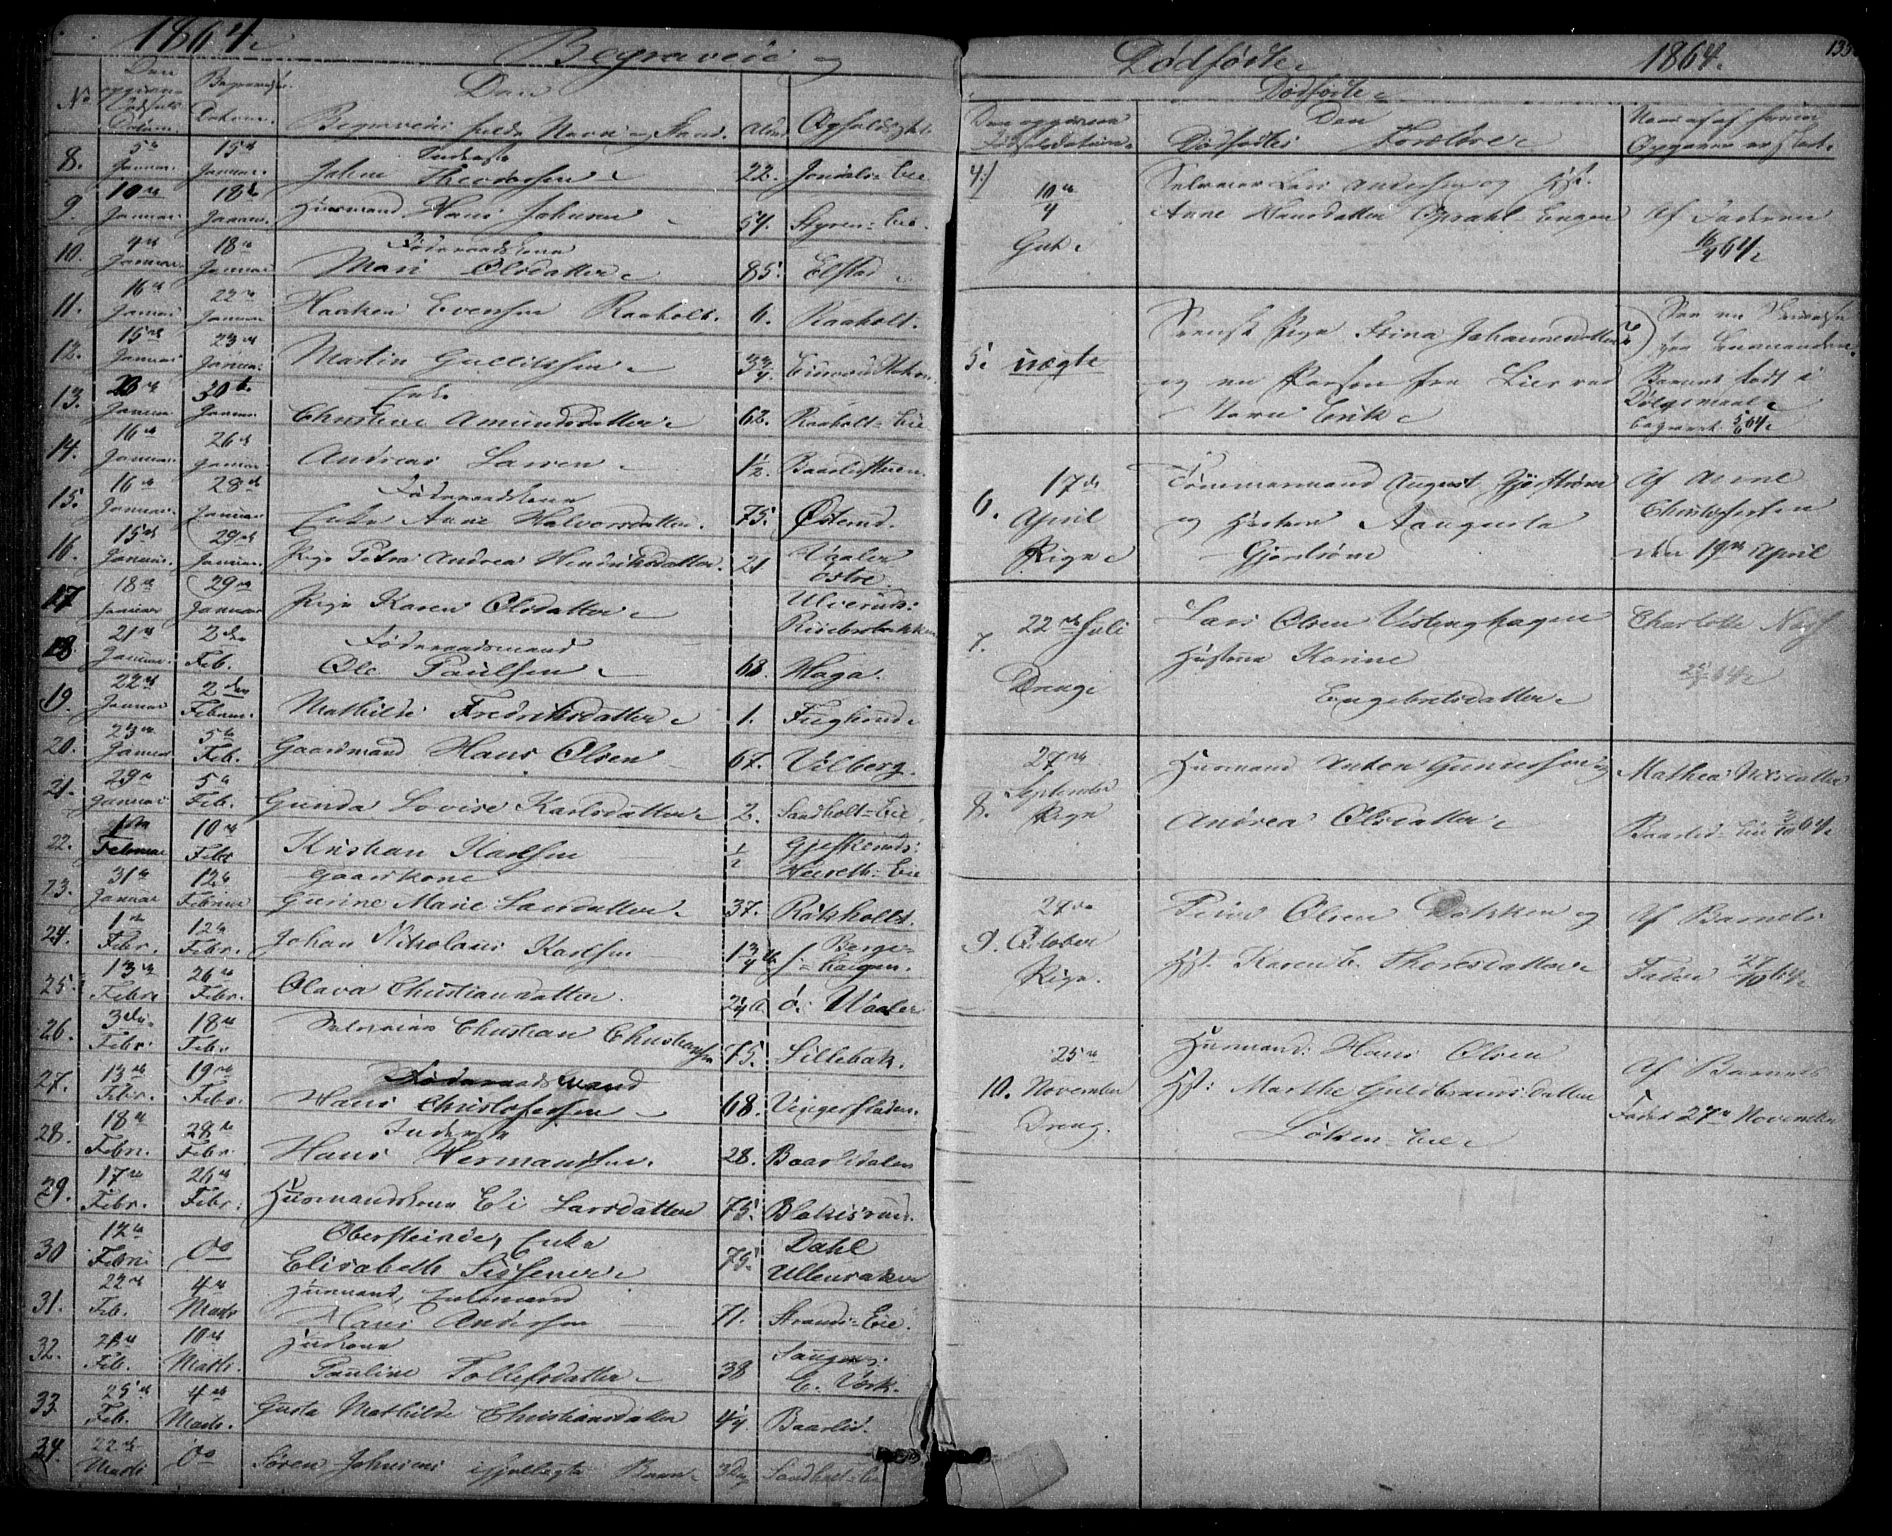 1864.
Begravede og
No
Den opgivne Dødsfalds Datum.
Begravelses Datum.
Den
Begravedes fulde Navn og Stand.
Alder
Opholdssted.
8. 5te Januar. 15de Januar. Inderst
Johan Theodorsen 22. Jondals-Eie
9. 10de Januar. 18de Januar. Husmand Hans Johnsen 54. Styren-Eie.
10. 4de Januar. 18de Januar Føderaadskone
Mari Olsdatter 85. Elstad
11. 16de Januar 22de Januar Haaken Evensen Raaholt. 6. Raaholt.
12. 15de Januar 23de Januar. Martin Gulliksen 3 3/4
13. Januar 30te Januar. Enke
Christine Amundsdatter 62. Raaholt-Eie
14. 16de Januar. 26de Januar. Andreas Larsen 1/2
15. 16de Januar. 28de Januar. Føderaadskone
Enke Anne Halvorsdatter. 75. Østerud.
16. 15de Januar. 29de Januar. Pige Petra Andrea Hendriksdatter. 21 Vaaler østre.
17 18de Januar 29de Januar Pige Karen Olsdatter Ulverud:
18 21de Januar. 2den Feb. Føderaadsmand
Ole Paulsen 68 Haga.
19. 22de Januar 2den Februar. Mathilde Fredriksdatter 1. Fuglerud
20. 23de Januar 5te Feb. Gaardmand Hans Olsen 67. Vilberg.
21. 29de Januar 5te Feb. Gunda Lovise Karlsdatter 2. Sandholt-Eie
22. 1ste Februar 10de Febr Kristian Karlsen 1/2
23. 31te Januar 12te Februar Gaardkone
Gurine Marie Larsdatter 37. Røisholdt.
24. 1ste Febr. 12te Febr. Johan Nikolaus Karlsen 1 3/4
25. 13de Febr. 26de Febr. Olava Christiansdatter. ø. Vaaler
26. 3die Febr. 18de Febr Selveier Christian Christiansen 75. Lillebak.
27. 13de Febr. 19de Febr. Føderaadsmand
Hans Christofersen 68. Vingerstaden.
28. 18de Febr. 28de Febr Inderst
Hans Hermandsen. 28. Baarlidalen
29. 17de Febr. 26de Febr. Husmandskone Eli Larsdatter 75.
30 12te Febr Do Oberstinde, Enke
Elisabeth Sissener 75. Dahl
Ullensaker
31. 22de Feb. 4de Marts Husmand, Enkemand
Hans Andersen 71. Strands-Eie.
32. Feb. 10de Marts. Huskone
Pauline Tollefsdatter 38 E. Værk.
33. 25de Feb. 4de Marts. Gusta Mathilde Christiansdatter 4/4 Baarlid.
34. 22de Marts Do Søren Johnsens Barn 3 Dg Sandholt-Eie
Dødfødte 1864.
Dødfødte
Den opgivne Fødselsdatum.
Den
Dødfødtes Forældre
Naar og af hvem Opgaven er skeet.
4.) 10de/4 Gut. Selveier Lars Andersen og Hst.
Anne Hansdatter Opsahl-Engen Af Faderen
16/4 64.
5. uægte Svensk Pige Stina Johannesdatter
og en Person fra Lier ved
Navn Erik
Barnet født i
Dølgsmaal
begravet 5/6 64.
6. 17de April Pige Tømmermand August Gjøstrøm
og Hustru Aaugusta
Gjøstrøm
Af Anne
Christofersen
den 19de April
7. 22de Juli Drenge Lars Olsen Vistenghagen
Hustru Karine
Engebretsdatter
Charlotte
8. 27de September Pige Husmand Anton Gundersen og
Andrea Olsdatter
Mathea Nilsdatter
Baarlid-Eie 2/10 64.
9. 24de October Pige. Peder Olsen Dokken og
Hst. Karen C. Thoresdatter
Af Barnets
Fader 27/10 64.
10. 25de November Dreng. Husmand: Hans Olsen
Hst: Marthe Guldbrandsdatter
Løken-Eie
Af Barnets
Fader 27de November